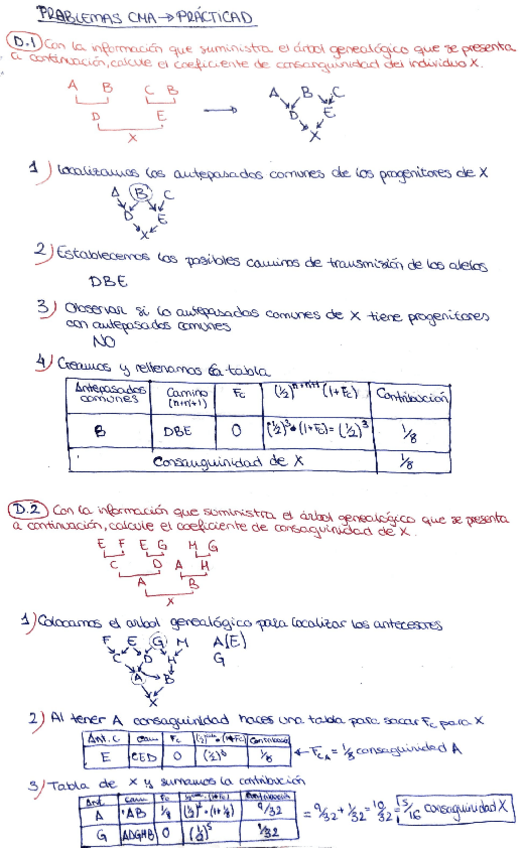 PROBLEMAS CMA → PRÁCTICAD
D.1 Con la información que suministra el árbol genealógico que se presenta
a continuación, calcule el coeficiente de consanguinidad del individuo X.
A B C B → A B C
D E D E
X X
1) Localizamos los antepasados comunes de los progenitores de X
A B C
D E
X
2) Establecemos los posibles caminos de transmisión de los alelos
DBE
3) Observar si los antepasados comunes de X tiene progenitores
con antepasados comunes
NO
4) Creamos y rellenamos la tabla
Antepasados comunes Camino (n+n'+1) Fc (1/2)^n+n'+1 (1+Fc) Contribución
B DBE 0 (1/2)³·(1+Fc)=(1/2)³ 1/8
Consanguinidad de X 1/8
D.2 Con la información que suministra el árbol genealógico que se presenta
a continuación, calcule el coeficiente de consaguinidad de X.
E F E G M G
C D A H
A B
X
1) Colocamos el arbol genealógico para localizar los antecesores
F E G M A(E)
C D H G
A B
X
2) Al tener A consaguinidad haces una tabla para sacar Fc para X
Ant. C cam Fc
E CED 0 (1/2)³ 1/8 ← F_CA = 1/8 consaguinidad A
3) Tabla de X y sumamos la contribución
Ant. cam Fc
A AB 1/8 (1/2)²·(1+1/8) 9/32
G ADGHB 0 (1/2)⁵ 1/32
= 9/32 + 1/32 = 10/32 = 5/16 consaguinidad X